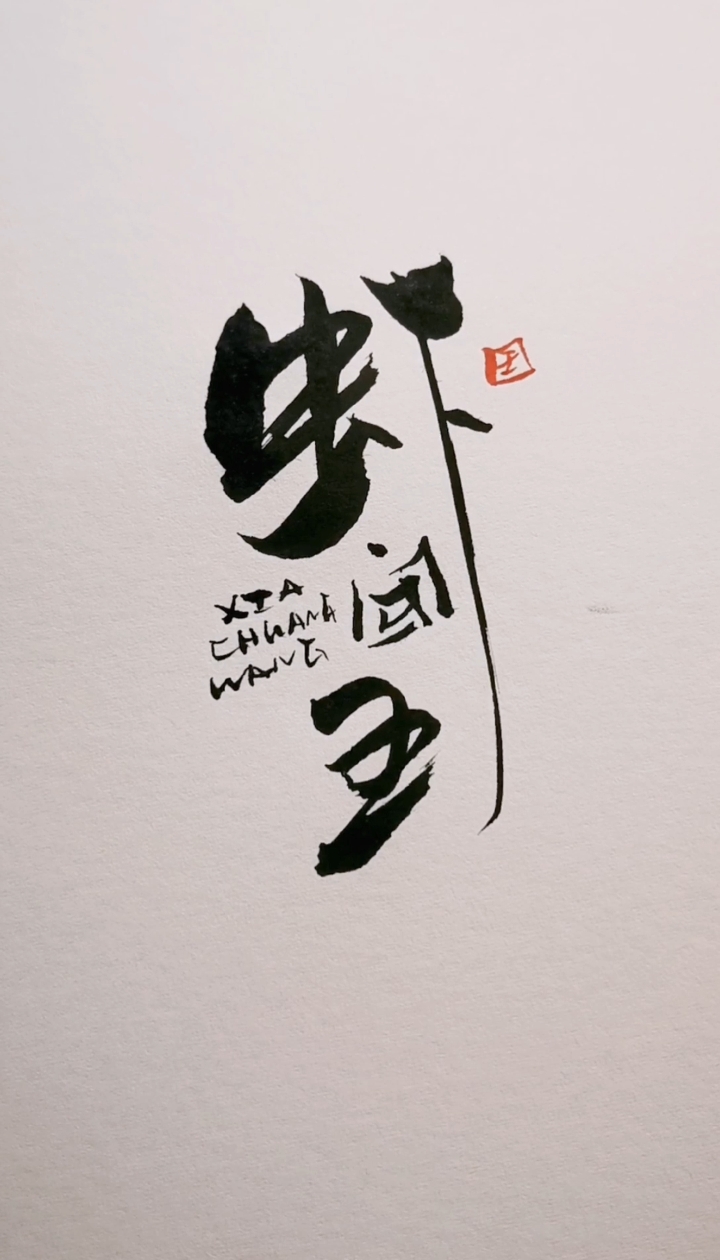 虾
闯
王
XIA
CHUANG
WANG